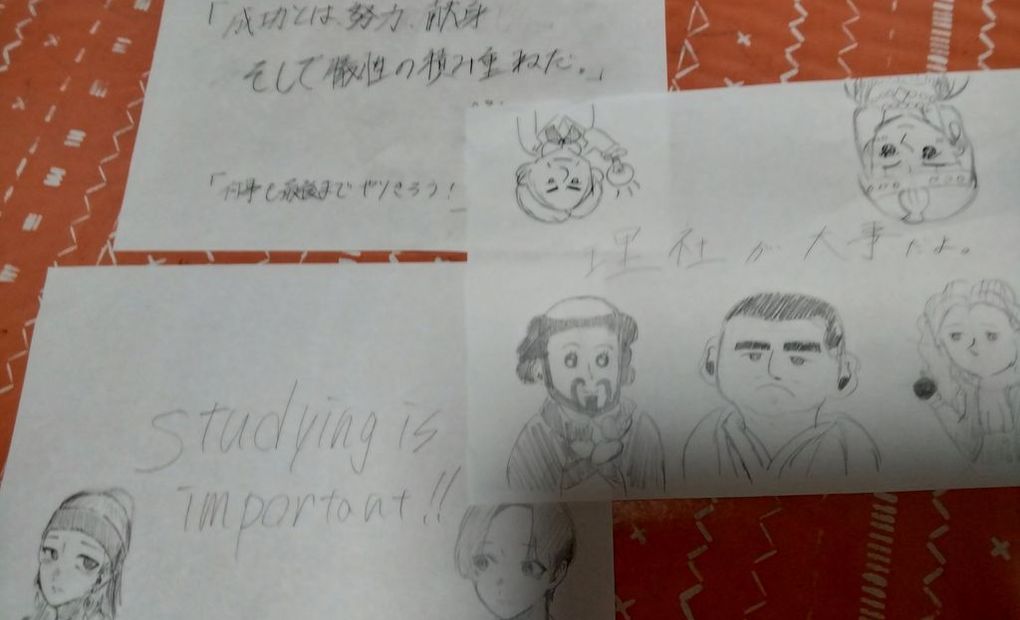 「成功とは、努力、献身
そして犠牲の積み重ねだ。」
「何事も最後までやりきろう!
理社が大事だよ。
studying is
important!!